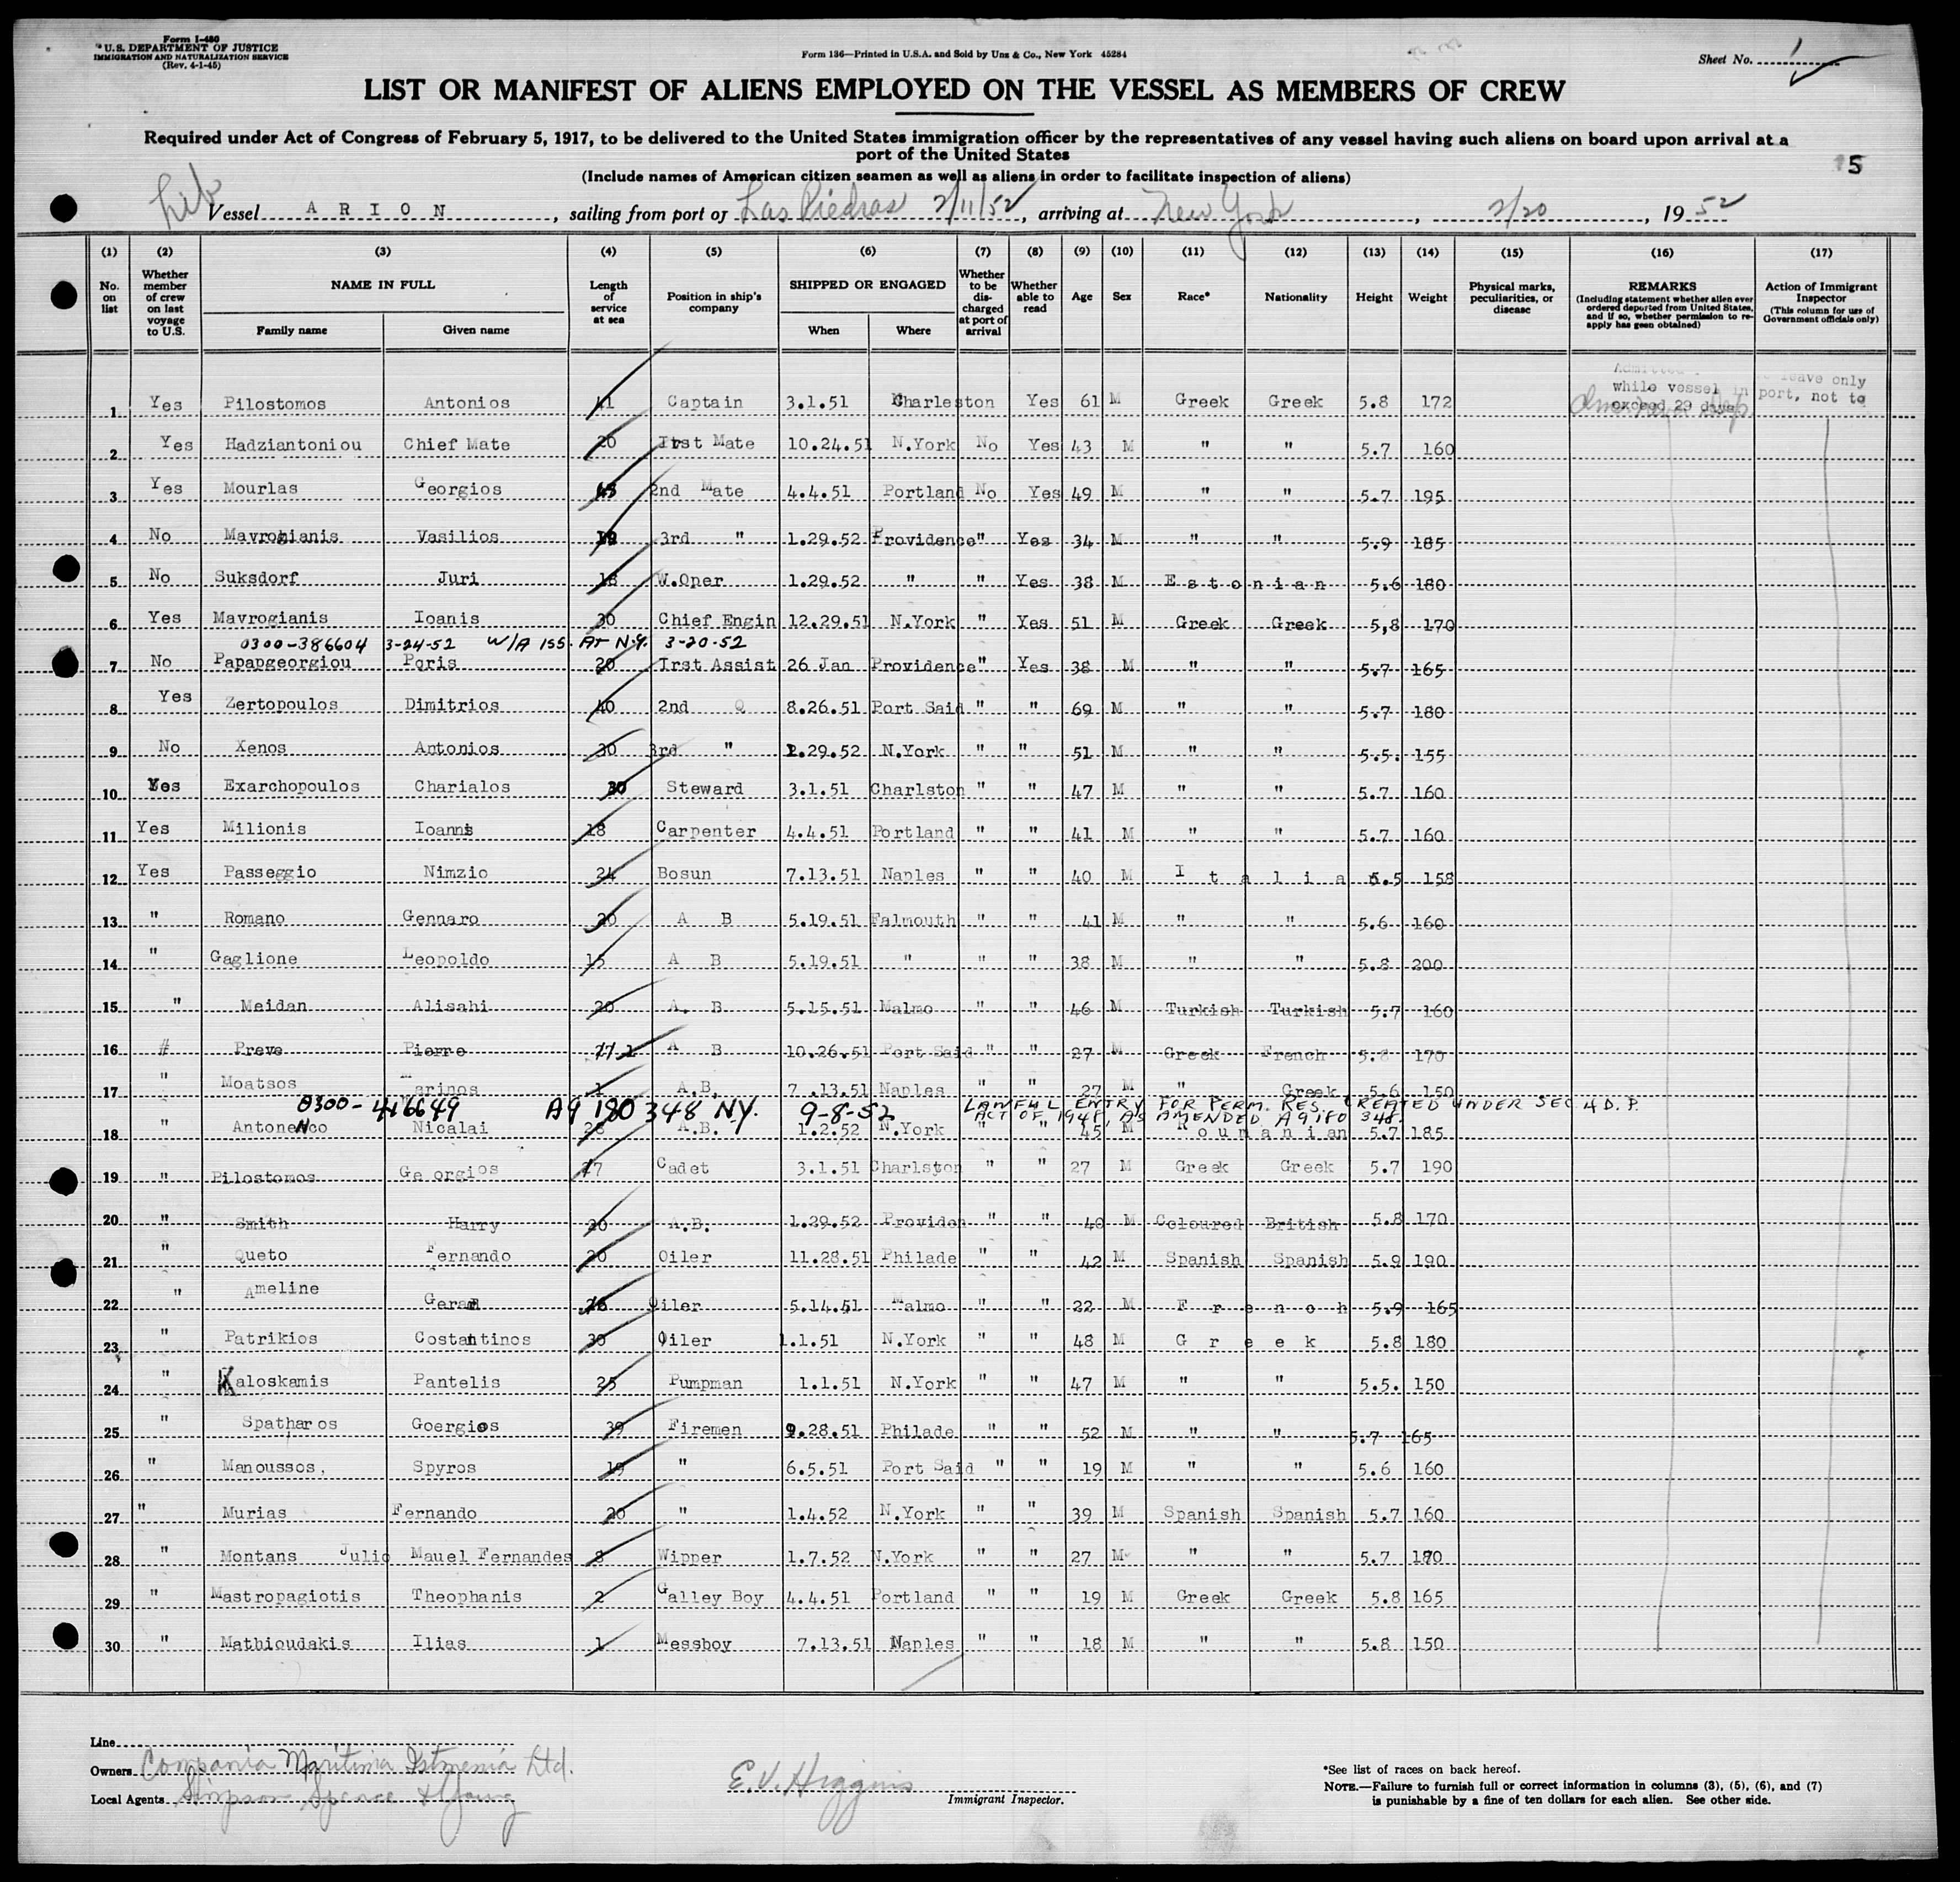 Form I-480
U.S. DEPARTMENT OF JUSTICE
IMMIGRATION AND NATURALIZATION SERVICE
(Rev. 4-1-45)
Form 136—Printed in U.S.A. and Sold by Unz & Co., New York 45284
Sheet No. 1
LIST OR MANIFEST OF ALIENS EMPLOYED ON THE VESSEL AS MEMBERS OF CREW
Required under Act of Congress of February 5, 1917, to be delivered to the United States immigration officer by the representatives of any vessel having such aliens on board upon arrival at a
port of the United States
5
(Include names of American citizen seamen as well as aliens in order to facilitate inspection of aliens)
Lib
Vessel ARION, sailing from port of Las Piedras 2/11/52, arriving at New York, 2/20, 1952
(1) (2) (3) (4) (5) (6) (7) (8) (9) (10) (11) (12) (13) (14) (15) (16) (17)
No. on list Whether member of crew on last voyage to U.S. NAME IN FULL Family name Given name Length of service at sea Position in ship's company SHIPPED OR ENGAGED When Where Whether to be discharged at port of arrival Whether able to read Age Sex Race* Nationality Height Weight Physical marks, peculiarities, or disease REMARKS (Including statement whether alien ever ordered deported from United States, and if so, whether permission to re-apply has been obtained) Action of Immigrant Inspector (This column for use of Government officials only)
Admitted leave only
while vessel in port, not to
exceed 29 days
1 Yes Pilostomos Antonios 41 Captain 3.1.51 Charleston Yes 61 M Greek Greek 5.8 172
2 Yes Hadziantoniou Chief Mate 20 Irst Mate 10.24.51 N.York No Yes 43 M " " 5.7 160
3 Yes Mourlas Georgios 2nd Mate 4.4.51 Portland No Yes 49 M " " 5.7 195
4 No Mavrogianis Vasilios 3rd " 1.29.52 Providence " Yes 34 M " " 5.9 185
5 No Suksdorf Juri 18 W.Oper 1.29.52 " " Yes 38 M Estonian 5.6 180
6 Yes Mavrogianis Ioanis 30 Chief Engin 12.29.51 N.York " Yes 51 M Greek Greek 5,8 170
0300-386604 3-24-52 W/A ISS. AT N.Y. 3-20-52
7 No Papapgeorgiou Poris 20 Irst Assist 26 Jan Providence " Yes 38 M " " 5.7 165
8 Yes Zertopoulos Dimitrios 40 2nd Q 8.26.51 Port Said " " 69 M " " 5.7 180
9 No Xenos Antonios 30 3rd " 1.29.52 N.York " " 51 M " " 5.5. 155
10 Yes Exarchopoulos Charialos 30 Steward 3.1.51 Charlston " " 47 M " " 5.7 160
11 Yes Milionis Ioannis 18 Carpenter 4.4.51 Portland " " 41 M " " 5.7 160
12 Yes Passeggio Nimzio 24 Bosun 7.13.51 Naples " " 40 M Italian 5.5 158
13 " Romano Gennaro 20 A B 5.19.51 Falmouth " " 41 M " " 5.6 160
14 " Gaglione Leopoldo 15 A B 5.19.51 " " " 38 M " " 5.8 200
15 " Meidan Alisahi 20 A. B 5.15.51 Malmo " " 46 M Turkish Turkish 5.7 160
16 " Preve Pierre A B 10.26.51 Port Said " " 27 M Greek French 5.8 170
17 " Moatsos Marinos 1 A.B. 7.13.51 Naples " " 27 M " Greek 5.6 150
0300-416649 A9 180 348 N.Y. 9-8-52 LAWFUL ENTRY FOR PERM. RES. CREATED UNDER SEC 4 D.P.
ACT OF 1948, AS AMENDED A9180 348.
18 " Antonenco Nicalai 28 A.B. 1.2.52 N.York " " 45 M Roumanian 5.7 185
19 " Pilostomos Georgios 7 Cadet 3.1.51 Charlston " " 27 M Greek Greek 5.7 190
20 " Smith Harry 20 A.B. 1.29.52 Providen " " 40 M Coloured British 5.8 170
21 " Queto Fernando 20 Oiler 11.28.51 Philade " " 42 M Spanish Spanish 5.9 190
22 " Ameline Gerard Oiler 5.14.51 Malmo " " 22 M French 5.9 165
23 " Patrikios Costantinos 30 Oiler 1.1.51 N.York " " 48 M Greek 5.8 180
24 " Kaloskamis Pantelis 25 Pumpman 1.1.51 N.York " " 47 M " " 5.5. 150
25 " Spatharos Goergios 39 Firemen 9.28.51 Philade " " 52 M " " 5.7 165
26 " Manoussos, Spyros 19 " 6.5.51 Port Said " " 19 M " " 5.6 160
27 " Murias Fernando 20 " 1.4.52 N.York " " 39 M Spanish Spanish 5.7 160
28 " Montans Julio Mauel Fernandes 8 Wipper 1.7.52 N.York " " 27 M " " 5.7 170
29 " Mastropagiotis Theophanis 2 Galley Boy 4.4.51 Portland " " 19 M Greek Greek 5.8 165
30 " Mathioudakis Ilias 1 Messboy 7.13.51 Naples " " 18 M " " 5.8 150
Line
Owners Compania Maritima Istmenia Ltd.
Local Agents Simpson Spence & Young
E.V. Higgins
Immigrant Inspector.
*See list of races on back hereof.
NOTE.—Failure to furnish full or correct information in columns (3), (5), (6), and (7)
is punishable by a fine of ten dollars for each alien. See other side.